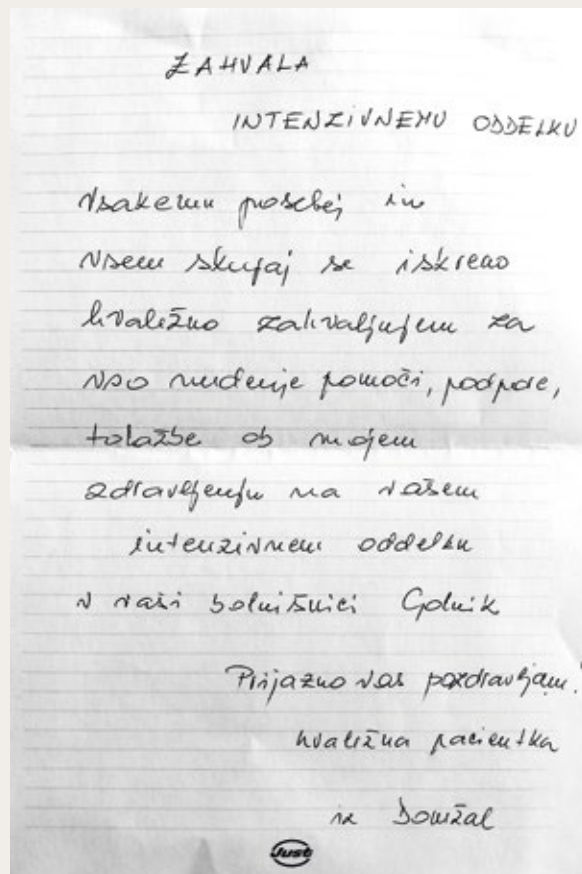 ZAHVALA
INTENZIVNEMU ODDELKU
Vsakemu posebej in
vsem skupaj se iskreno
hvaležno zahvaljujem za
vso nudenje pomoči, podpore,
tolažbe ob mojem
zdravljenju na vašem
intenzivnem oddelku
v vaši bolnišnici Golnik
Prijazno vas pozdravljam!
hvaležna pacientka
iz Domžal
Just